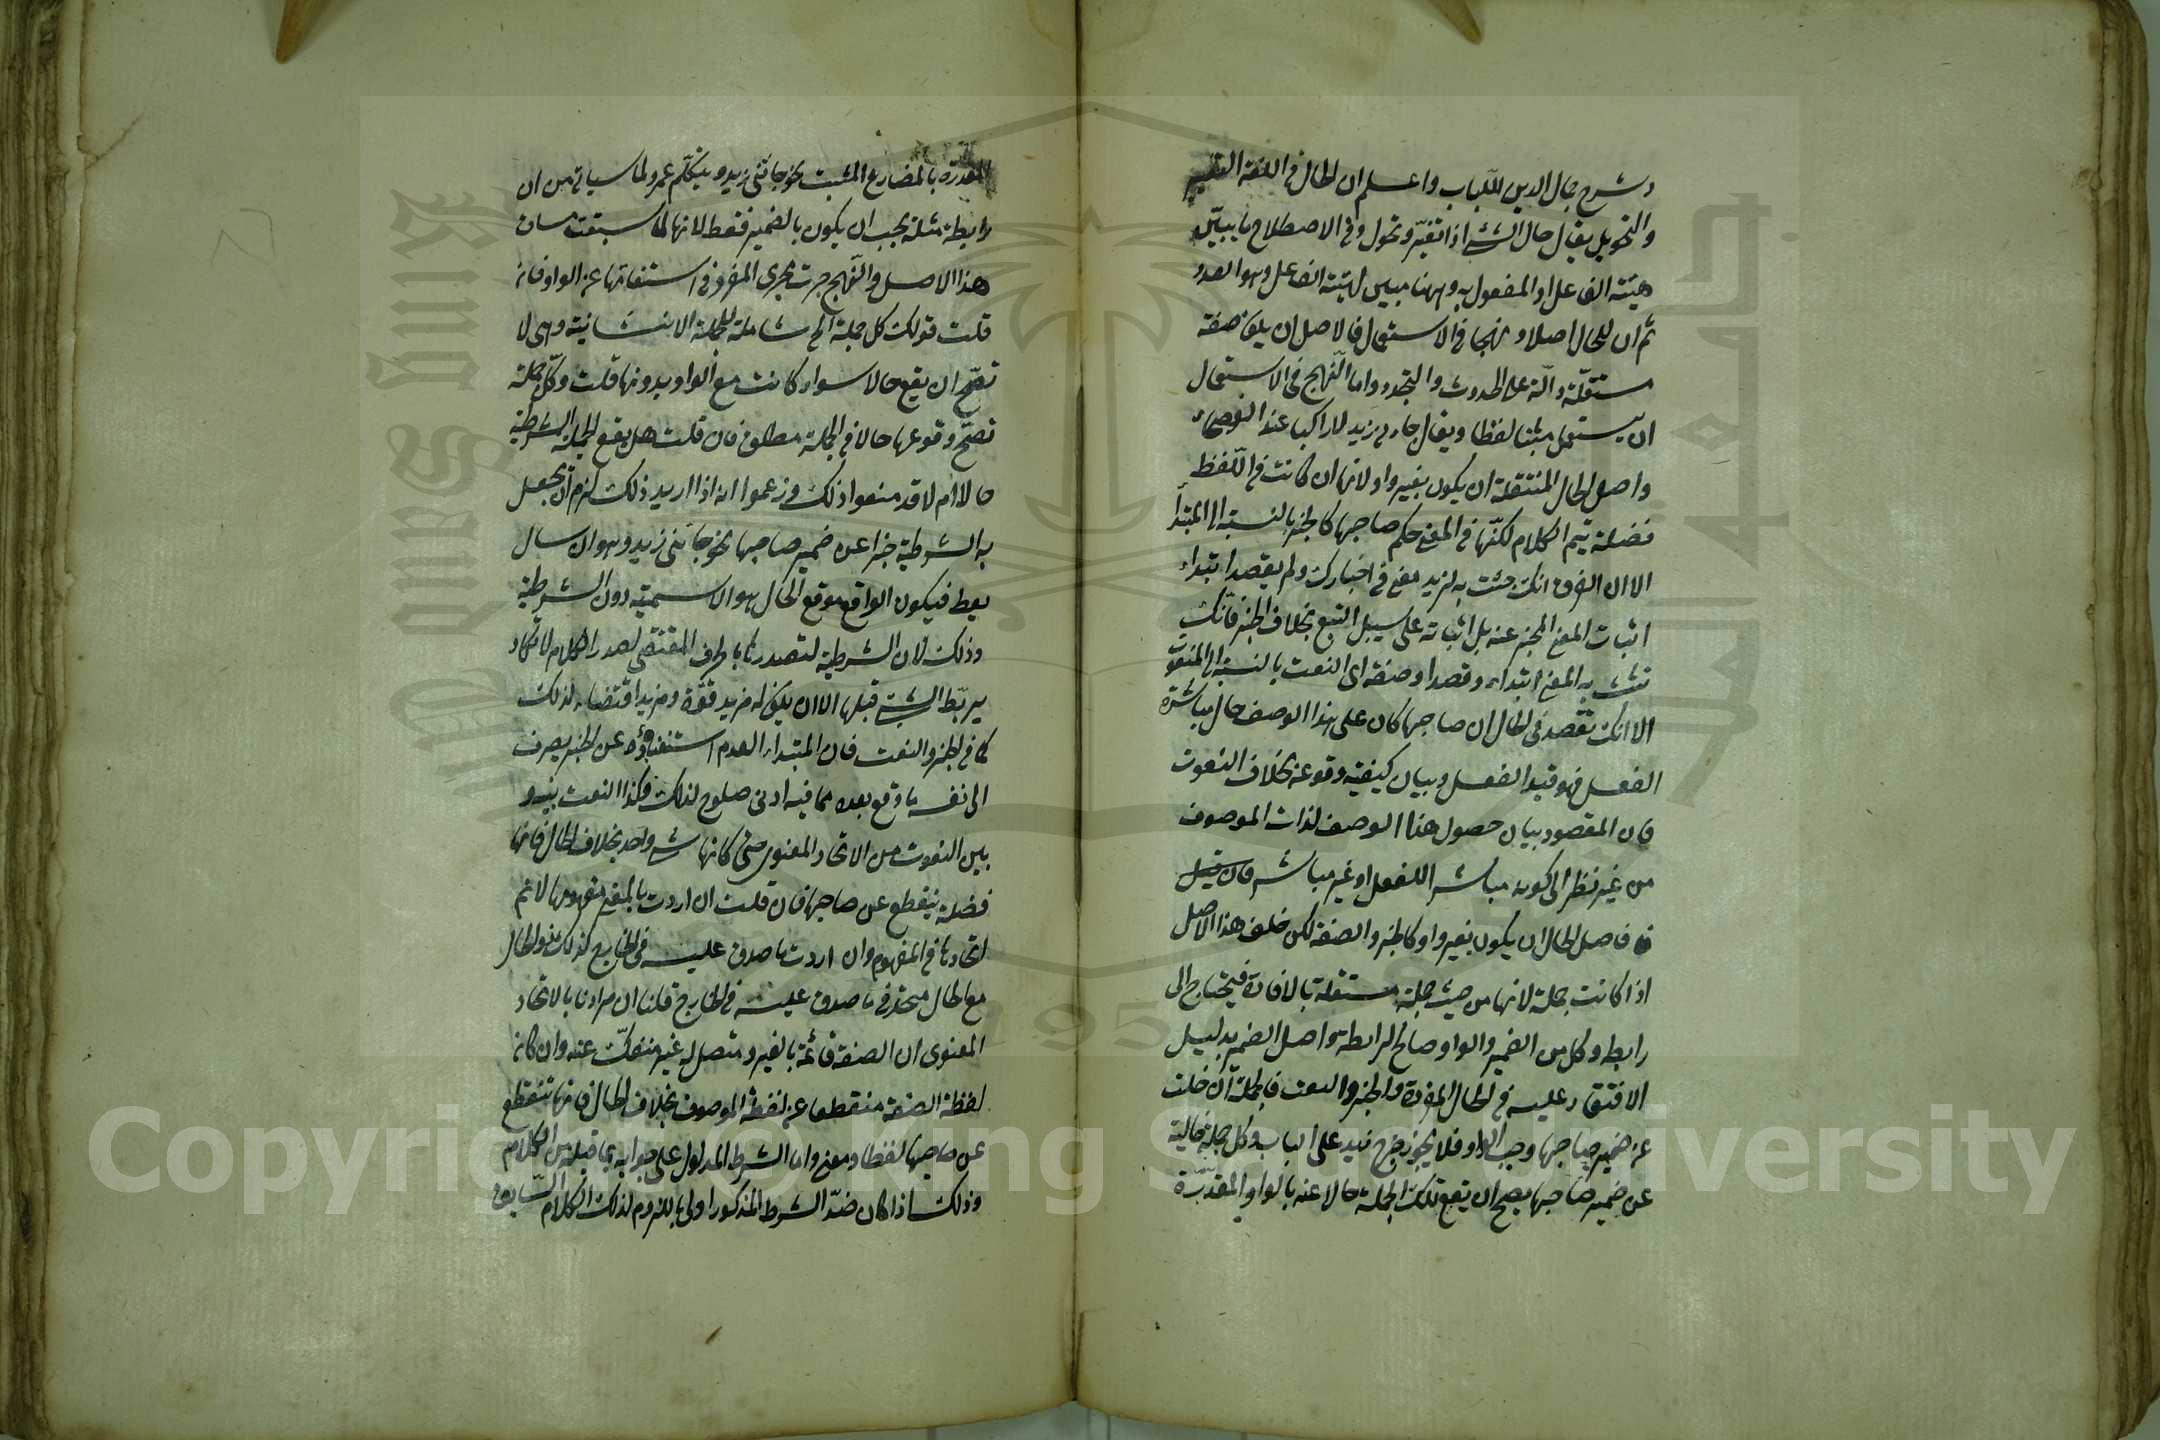 وشرح جمال الدين للباب واعلم ان الحال في اللغة التغيير
والتحويل يقال حال الشئ اذا تغيّر وتحول وفي الاصطلاح ما يبيّن
هيئة الفاعل او المفعول به وههنا مبين لهيئة الفاعل وهو العدو
ثم ان للحال اصلا ونهجا في الاستعمال فالاصل ان يكون صفة
منتقلة دالّة على الحدوث والتجدد واما النّهج في الاستعمال
ان يستعمل مثبتا لفظا ويقال جاءني زيد لا راكبا عند الفصحاء
واصل الحال المنتقلة ان يكون بغير واو لانها ان كانت في اللّفظ
فضلة يتم الكلام لكنّها في المعنى حكم صاحبها كالخبر بالنسبة الى المبتدأ
الا ان الفرق انك جئت به لتزيد معنى في اخبارك ولم يقصد ابتداء
اثبات المعنى المخبر عنه بل اثباته على سبيل التبع بخلاف الخبر فانّك
تثبت به المعنى ابتداء وقصدا وصفة اى النعت بالنسبة الى المنعوت
الا انك تقصد في الحال ان صاحبها كان على هذا الوصف حال مباشرة
الفعل فهو قيد الفعل وبيان كيفية وقوعه بخلاف النعوت
فان المقصود بيان حصول هذا الوصف لذات الموصوف
من غير نظر الى كونه مباشر اللفعل او غير مباشر فان قيل
فاصل الحال ان يكون بغير واو كالخبر والصفة لكن خلف هذا الاصل
اذا كانت جملة لانها من حيث جملة مستقلة بالافادة فيحتاج الى
رابط وكل من الضمير والواو صالح للرابطة واصل الضمير بدليل
الاقتصار عليه في الحال المفردة والخبر والنعت فالجملة ان خلت
عن ضمير صاحبها وجب الواو فلا يجوز خرج زيد على الباب وكل جملة خالية
عن ضمير صاحبها يصح ان يقع تلك الجملة حالا عنه بالواو المقدّرة
المقدرة بالمضارع المثبت نحو جائني زيد ويتكلّم عمرو لما سيأتي من ان
رابطة مثله يجب ان يكون بالضمير فقط لانها لما سبقت
هذا الاصل والنّهج جرت مجرى المفرد في استغنائها عن الواو فان
قلت قولك كل جملة الخ شاملة للجملة الانشائية وهي لا
تصحّ ان يقع حالا سواء كانت مع الواو وبدونها قلت وكل جملة
تصحّ وقوعها حالا في الجملة مطلق فان قلت هل يقع الجملة الشرطية
حالا ام لا قد منعوا ذلك وزعموا انه اذا اريد ذلك لزم ان يجعل
به الشرطية خبرا عن ضمير صاحبها نحو جائني زيد وهو ان سال
يعط فيكون الواقع موقع الحال هو الاسمية دون الشرطية
وذلك لان الشرطية لتصدرها بالحرف المقتضي لصدر الكلام لا تكاد
يربّط الشئ قبلها الا ان يكون له مزيد قوّة ومزيد اقتضاء لذلك
كما في الخبر والنعت فان المبتداء لعدم استغناؤه عن الخبر يصرف
الى نفسه ما وقع بعده مما فيه ادنى صلوح لذلك وكذا النعت بينه و
بين المنعوت من الاتحاد المعنوي حتى كانها شئ واحد بخلاف الحال فانها
فضلة ينقطع عن صاحبها فان قلت ان اردت بالمعنى مفهومها لا نم
اتحادها في المفهوم وان اردت ما صدق عليه في الخارج كذلك ذو الحال
مع الحال متحد في ما صدق عليه في الخارج قلنا ان مرادنا بالاتحاد
المعنوي ان الصفة قائمة بالغير ومتصل له غير منفكّ عنه وان كان
لفظة الصفة منقطعا عن لفظة الموصوف بخلاف الحال فانها تنقطع
عن صاحبها لفظا ومعنى واما الشرط المدلول على جوابه بما قبله من الكلام
وذلك اذا كان ضدّ الشرط المذكور اولى باللزوم لذلك الكلام السّابق